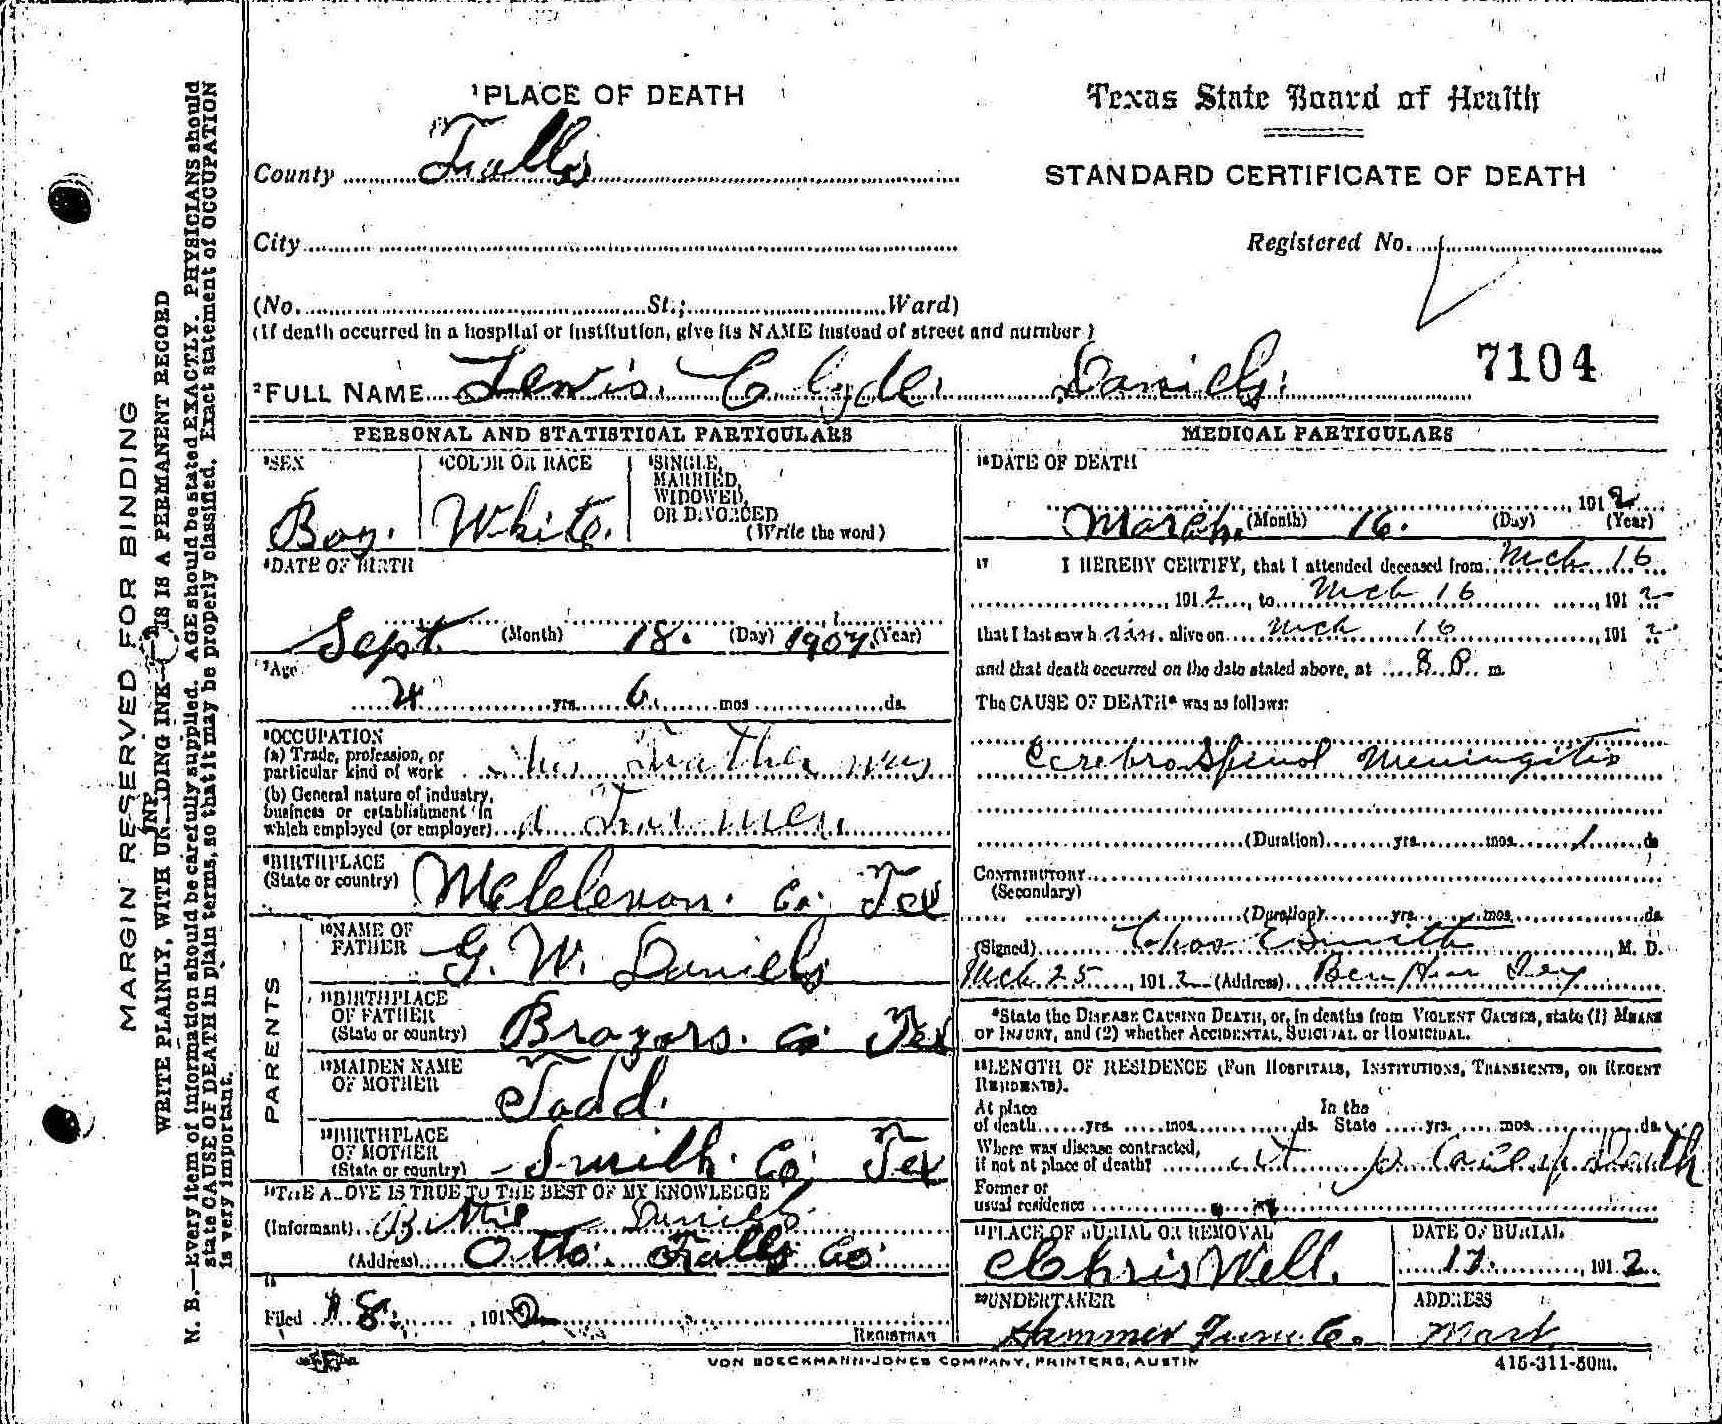 MARGIN RESERVED FOR BINDING
WRITE PLAINLY, WITH UNFADING INK—THIS IS A PERMANENT RECORD
N. B.—Every item of information should be carefully supplied. AGE should be stated EXACTLY. PHYSICIANS should
state CAUSE OF DEATH in plain terms, so that it may be properly classified. Exact statement of OCCUPATION
is very important.
1 PLACE OF DEATH
Texas State Board of Health
County Falls
STANDARD CERTIFICATE OF DEATH
City
Registered No.
(No. St.; Ward)
(If death occurred in a hospital or institution, give its NAME instead of street and number)
7104
2 FULL NAME Lewis Clyde Daniels
PERSONAL AND STATISTICAL PARTICULARS
3 SEX
Boy.
4 COLOR OR RACE
White.
5 SINGLE,
MARRIED,
WIDOWED,
OR DIVORCED
(Write the word)
6 DATE OF BIRTH
Sept. (Month) 18. (Day) 1907. (Year)
7 Age
4 yrs. 6 mos. ds.
8 OCCUPATION
(a) Trade, profession, or
particular kind of work his Father was
(b) General nature of industry,
business or establishment in
which employed (or employer) a Farmer
9 BIRTHPLACE
(State or country) Co. Tex
PARENTS
10 NAME OF
FATHER G. W. Daniels
11 BIRTHPLACE
OF FATHER
(State or country) Brazors. Co Tex
12 MAIDEN NAME
OF MOTHER Todd.
13 BIRTHPLACE
OF MOTHER
(State or country) Smith. Co. Tex
14 THE ABOVE IS TRUE TO THE BEST OF MY KNOWLEDGE
(Informant) Daniels
(Address) Otto. Falls Co.
15
Filed 18. 1912
REGISTRAR
MEDICAL PARTICULARS
16 DATE OF DEATH
March. (Month) 16. (Day) 1912 (Year)
17 I HEREBY CERTIFY, that I attended deceased from Mch 16
1912, to Mch 16 1912
that I last saw him alive on Mch 16 1912
and that death occurred on the date stated above, at 8 P. m.
The CAUSE OF DEATH* was as follows:
Cerebro Spinal Meningitis
(Duration) yrs. mos. 1 ds
CONTRIBUTORY
(Secondary)
(Duration) yrs. mos. ds.
(Signed) Chas E Smith, M. D.
Mch 25, 1912 (Address) Ben Hur Tex
*State the DISEASE CAUSING DEATH, or, in deaths from VIOLENT CAUSES, state (1) MEANS
OF INJURY, and (2) whether ACCIDENTAL, SUICIDAL or HOMICIDAL.
18 LENGTH OF RESIDENCE (FOR HOSPITALS, INSTITUTIONS, TRANSIENTS, OR RECENT
RESIDENTS).
At place In the
of death yrs. mos. ds. State yrs. mos. ds.
Where was disease contracted,
if not at place of death? at place of death
Former or
usual residence
19 PLACE OF BURIAL OR REMOVAL
Chris Well.
DATE OF BURIAL
17. 1912
20 UNDERTAKER
Hammer Furn Co.
ADDRESS
Mart
VON BOECKMANN-JONES COMPANY, PRINTERS, AUSTIN
415-311-50m.